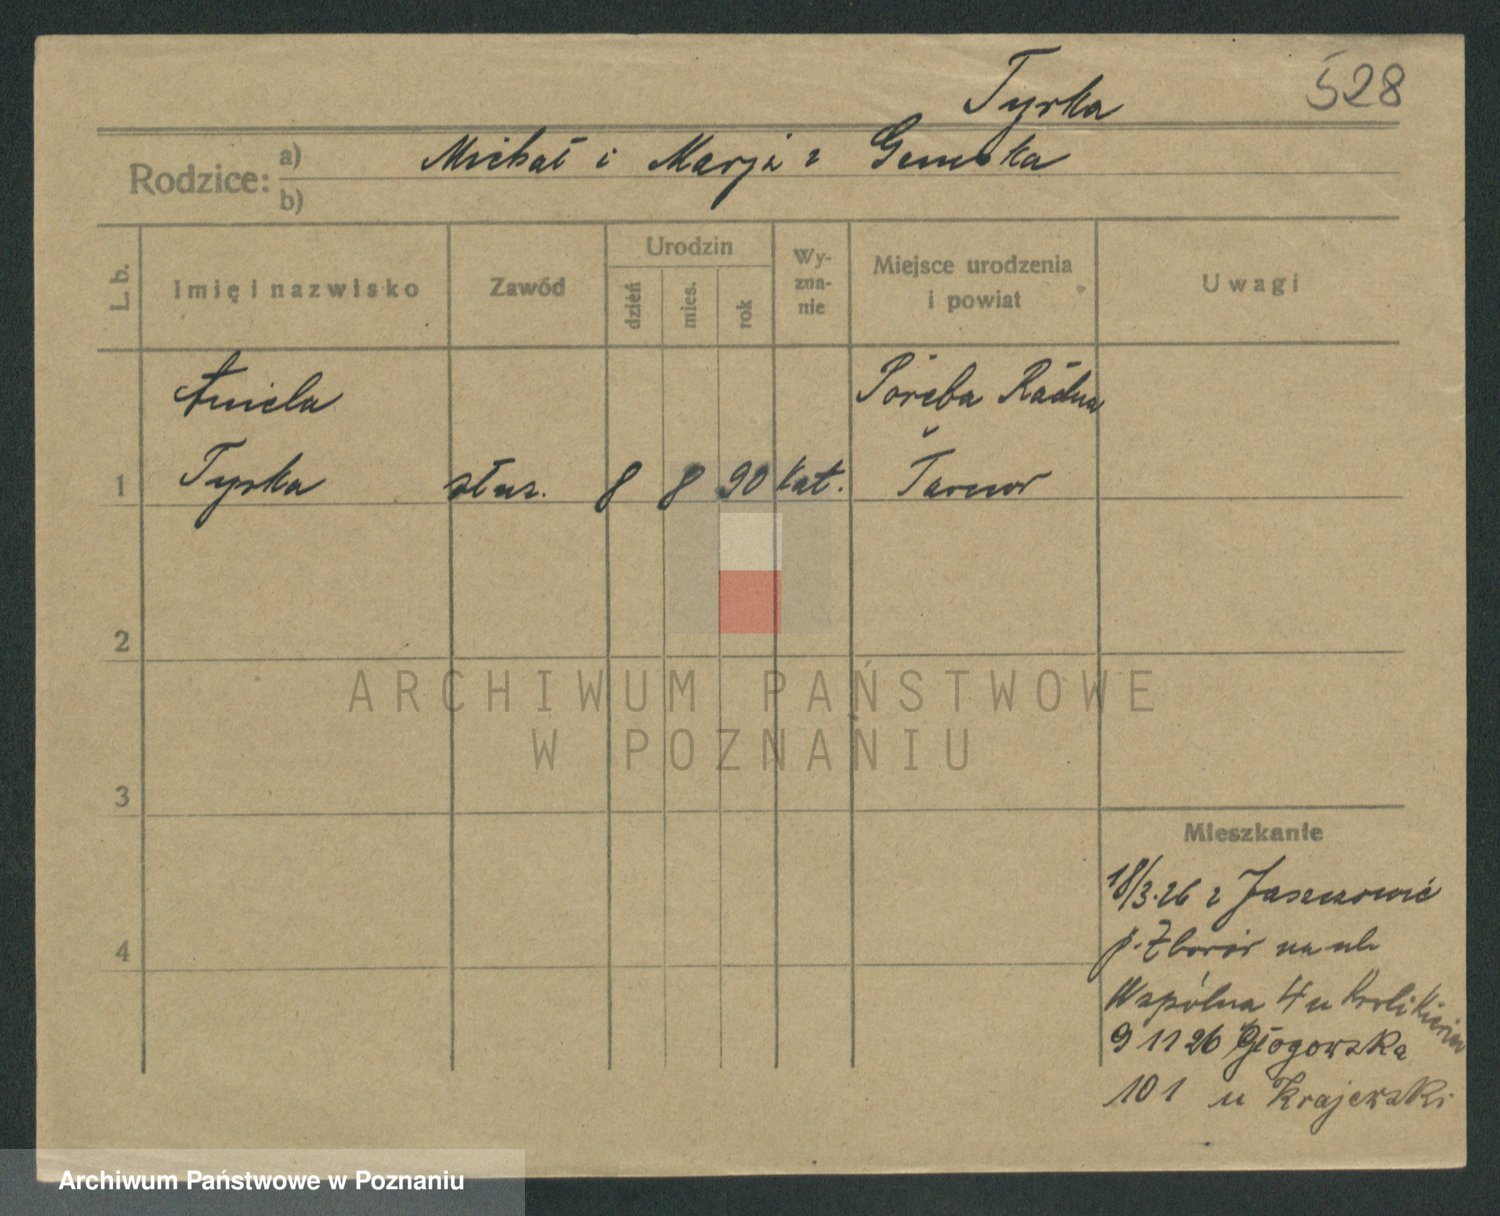 528
Tyrka
Rodzice: a) Michał i Marja z
b)
L. b.
Imię i nazwisko
Zawód
Urodzin
dzień
mies.
rok
Wy-
zna-
nie
Miejsce urodzenia
i powiat
Uwagi
Aniela
Poręba Radna
1 Tyrka służ. 8 8 90 kat. Tarnów
2
3
4
ARCHIWUM PAŃSTWOWE
W POZNANIU
Mieszkanie
18/3.26 z Jaszczowić
p. Zborów na ul.
Wspólna 4 u
9 11 26 Głogowska
101 u Krajewski
Archiwum Państwowe w Poznaniu